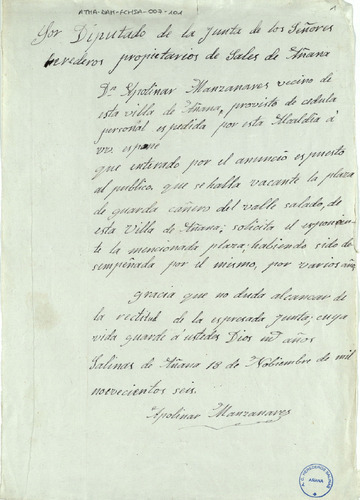 ATHA-DAH-FCHDA-007-101
1
Sor Diputado de la Junta de los Señores
herederos propietarios de Sales de Añana
Dn. Apolinar Manzanares vecino de
esta villa de Añana, provisto de cedula
personal espedida por esta Alcaldia á
V.s. espone
que enterado por el anuncio espuesto
al publico, que se halla vacante la plaza
de guarda cañero del valle salado, de
esta Villa de Añana; solicita el esponien-
te la mencionada plaza; habiendo sido de-
sempeñada por el mismo, por varios años
gracia que no duda alcanzar de
la rectitud de la espresada Junta; cuya
vida guarde á ustedes Dios ms. años
Salinas de Añana 18 de Nobiembre de mil
novecientos seis.
Apolinar Manzanares
AÑANA